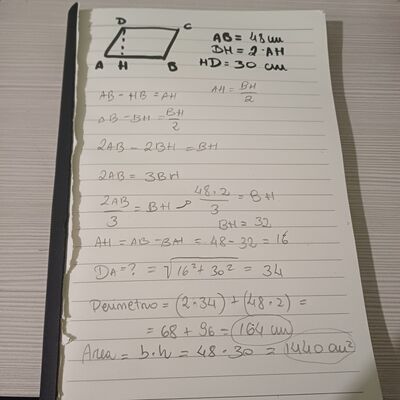 D C
A H B
AB = 48 cm
BH = 2·AH
HD = 30 cm
AB - HB = AH AH = BH/2
AB - BH = BH/2
2AB - 2BH = BH
2AB = 3BH
2AB/3 = BH → 48·2/3 = BH
BH = 32
AH = AB - BH = 48 - 32 = 16
DA = ? = √16² + 30² = 34
Perimetro = (2·34) + (48·2) =
= 68 + 96 = 164 cm
Area = b·h = 48·30 = 1440 cm²